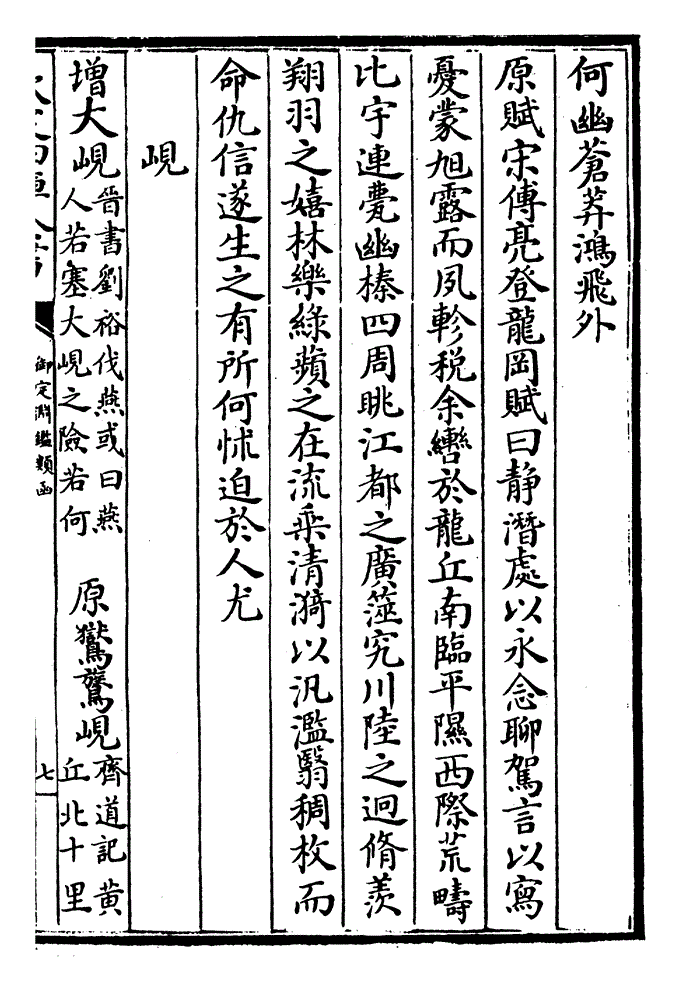 何幽蒼莽鴻飛外
原賦宋傅亮登龍岡賦曰静潛處以永念聊駕言以寫
憂蒙旭露而夙軫税余轡於龍丘南臨平隰西際荒疇
比宇連甍幽榛四周眺江都之廣筵究川陸之迥脩羨
翔羽之嬉林樂綠蘋之在流乘清漪以汎濫翳稠枚而
命仇信遂生之有所何怵迫於人尤
峴
增大峴晉書劉裕伐燕或曰燕
人若塞大峴之險若何
原鸑鷟峴齊道記黄
丘北十里
御定淵鑑類函
七